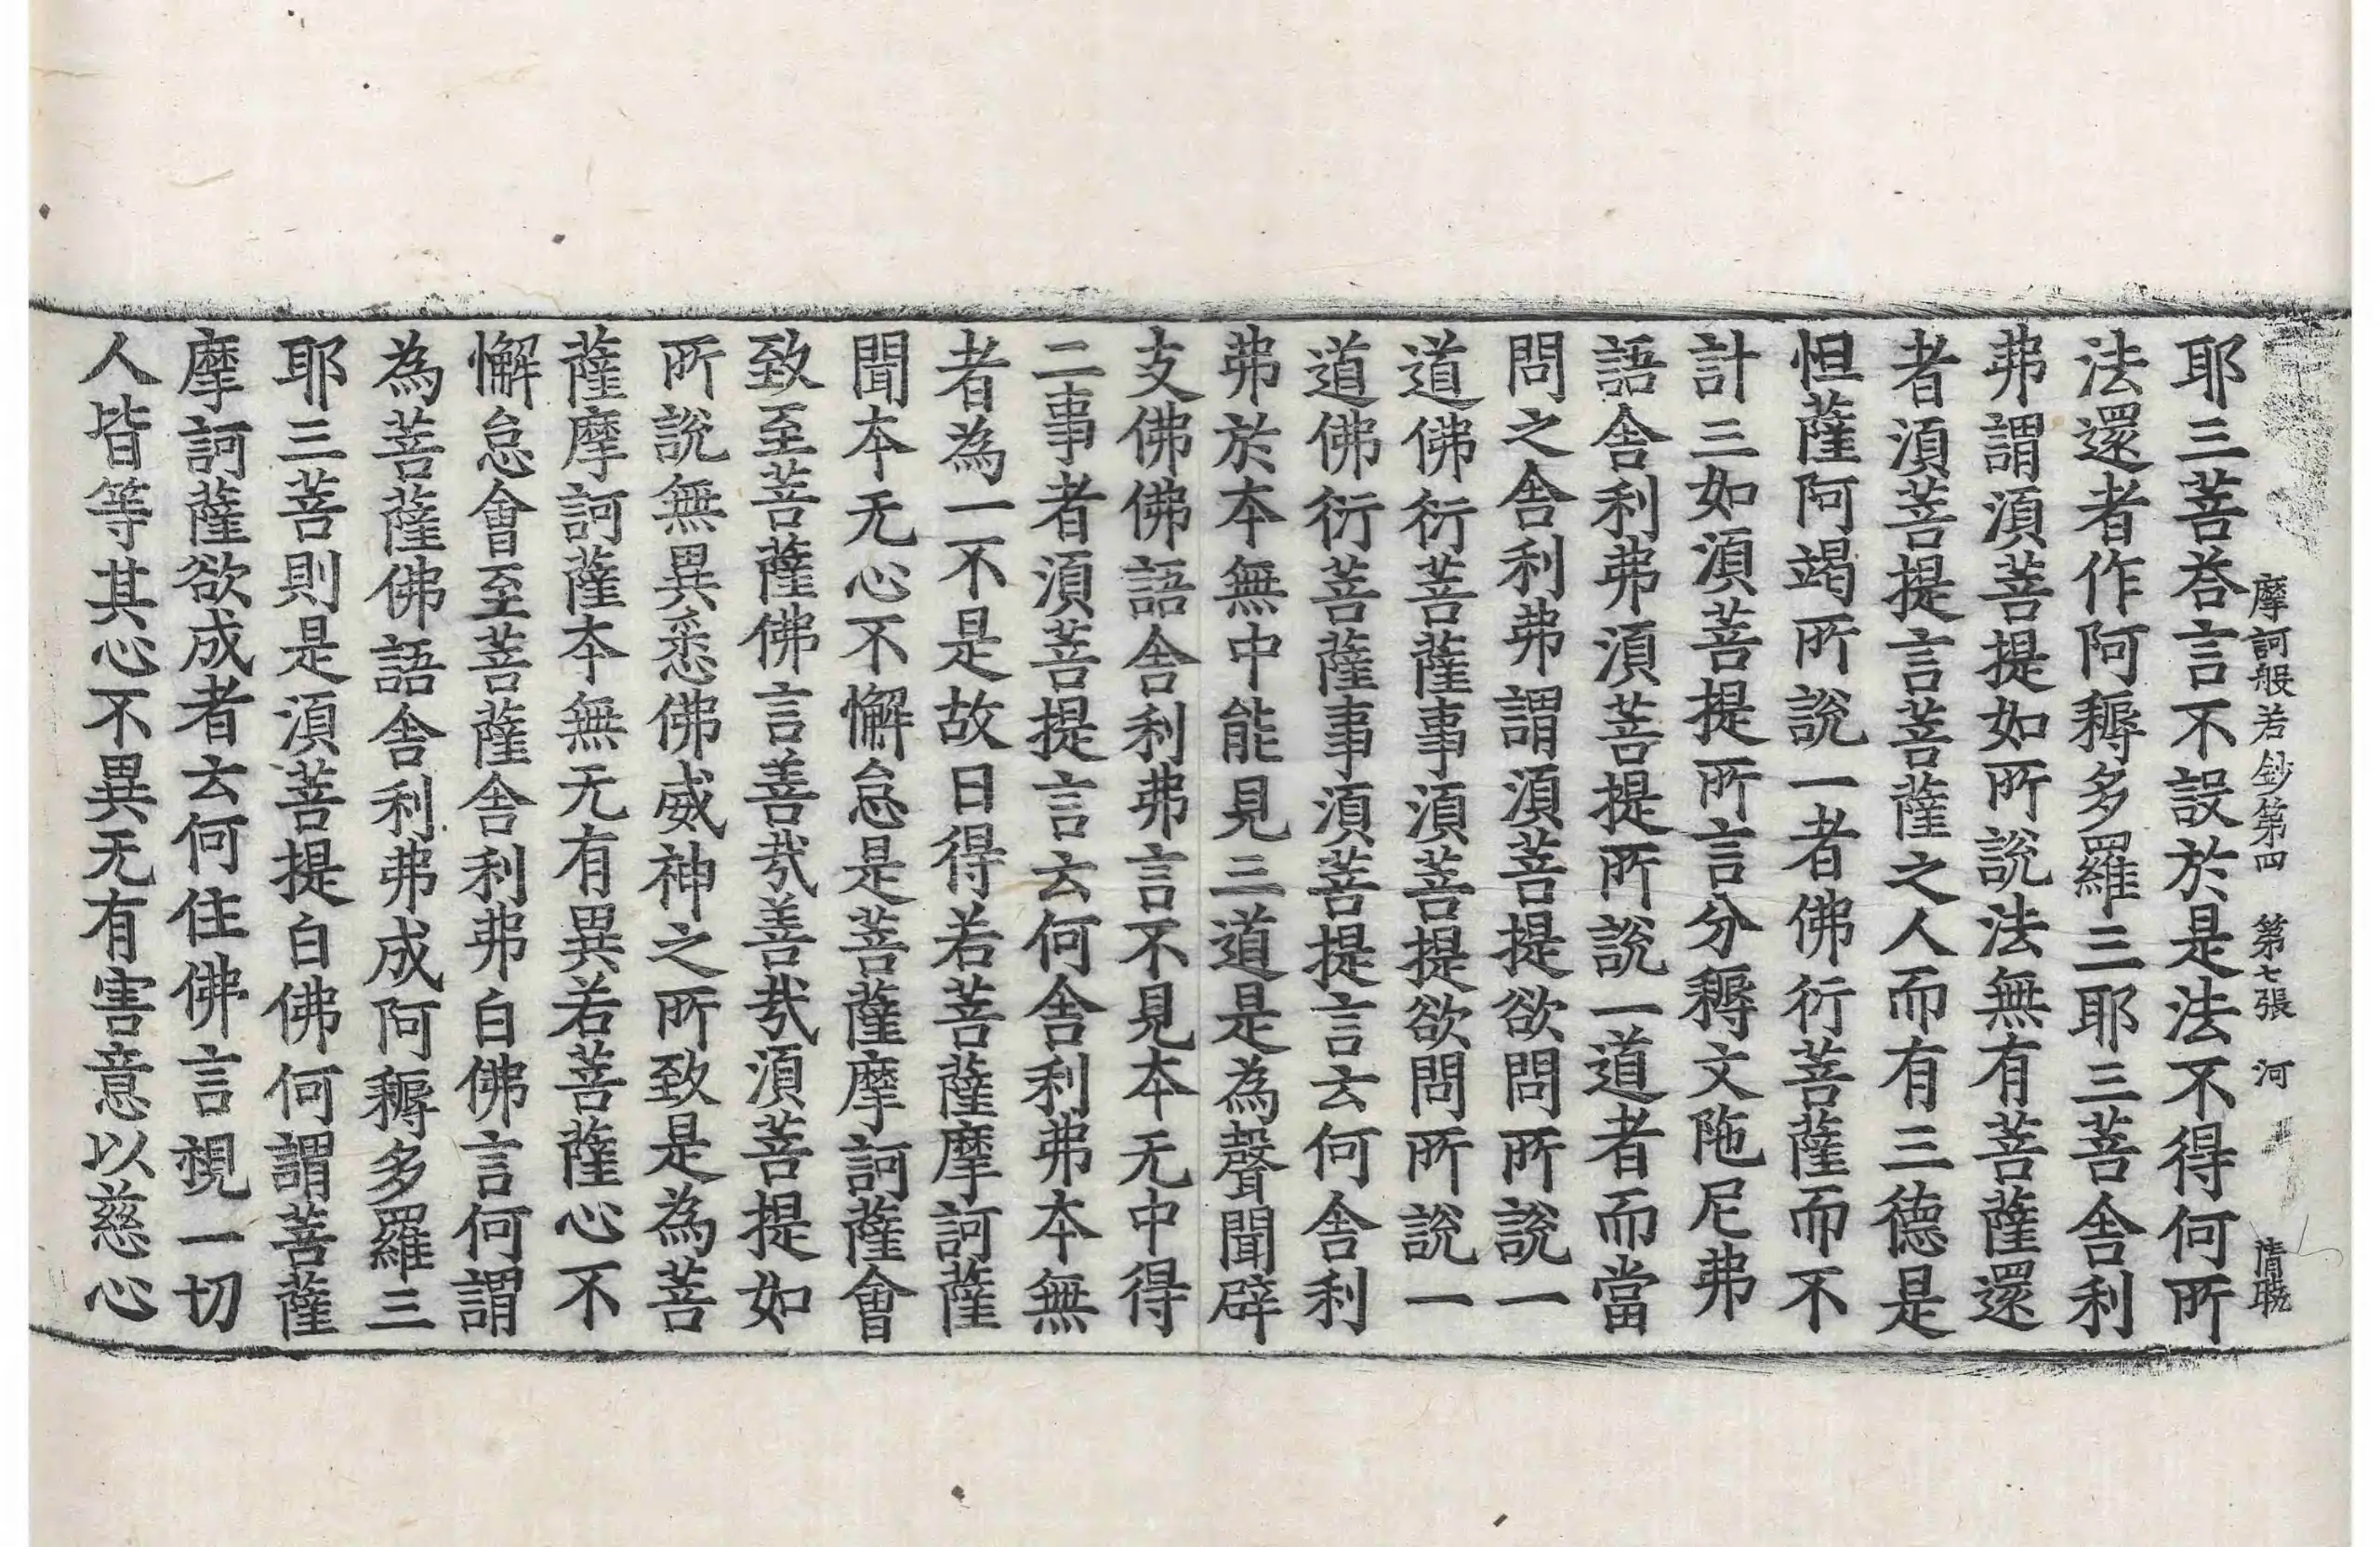 摩訶般若鈔第四 第七張 河 清聡
耶三菩荅言不設於是法不得何所
法還者作阿耨多羅三耶三菩舍利
弗謂湏菩提如所說法無有菩薩還
者湏菩提言菩薩之人而有三德是
怛薩阿竭所說一者佛衍菩薩而不
計三如湏菩提所言分耨文陁尼弗
語舍利弗湏菩提所說一道者而當
問之舍利弗謂湏菩提欲問所說一
道佛衍菩薩事湏菩提欲問所說一
道佛衍菩薩事湏菩提言云何舍利
弗於本無中能見三道是為聲聞辟
支佛佛語舍利弗言不見本无中得
二事者湏菩提言云何舍利弗本無
者為一不是故日得若菩薩摩訶薩
聞本无心不懈怠是菩薩摩訶薩會
致至菩薩佛言善㢤善㢤湏菩提如
所說無異悉佛威神之所致是為菩
薩摩訶薩本無无有異若菩薩心不
懈怠會至菩薩舍利弗白佛言何謂
為菩薩佛語舍利弗成阿耨多羅三
耶三菩則是湏菩提白佛何謂菩薩
摩訶薩欲成者云何住佛言視一切
人皆等其心不異无有害意以慈心